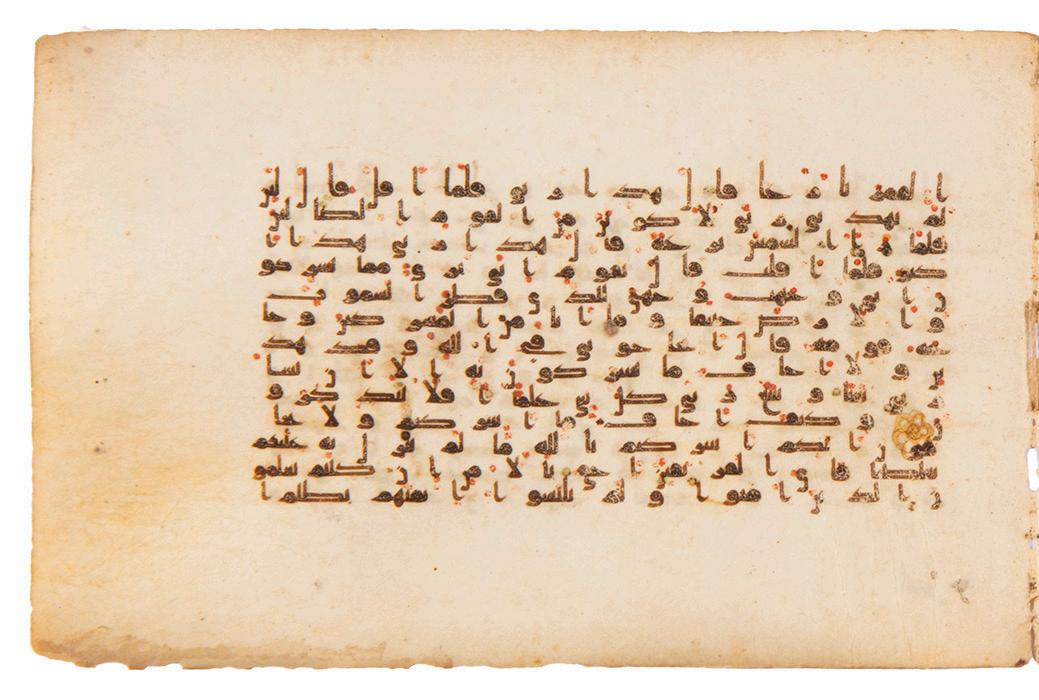 ا القمر بازغا قال هذا ربي فلما افل قال لئن
لم يهدني ربي لاكونن من القوم الضالين
فلما را الشمس بازغة قال هذا ربي هذا ا
كبر فلما افلت قال يقوم اني بري مما تشركو
ن اني وجهت وجهي للذي فطر السموت
و الارض حنيفا وما انا من المشركين وحا
جه قومه قال اتحجوني في الله وقد هد
ين ولا اخاف ما تشركون به الا ان يشا
ربي شيا وسع ربي كل شي علما افلا تتذكرو
ن وكيف اخاف ما اشركتم ولا تخا
فون انكم اشركتم بالله ما لم ينزل به عليكم
سلطنا فاي الفريقين احق بالامن ان كنتم تعلمو
ن الذين امنوا ولم يلبسوا ايمنهم بظلم ا